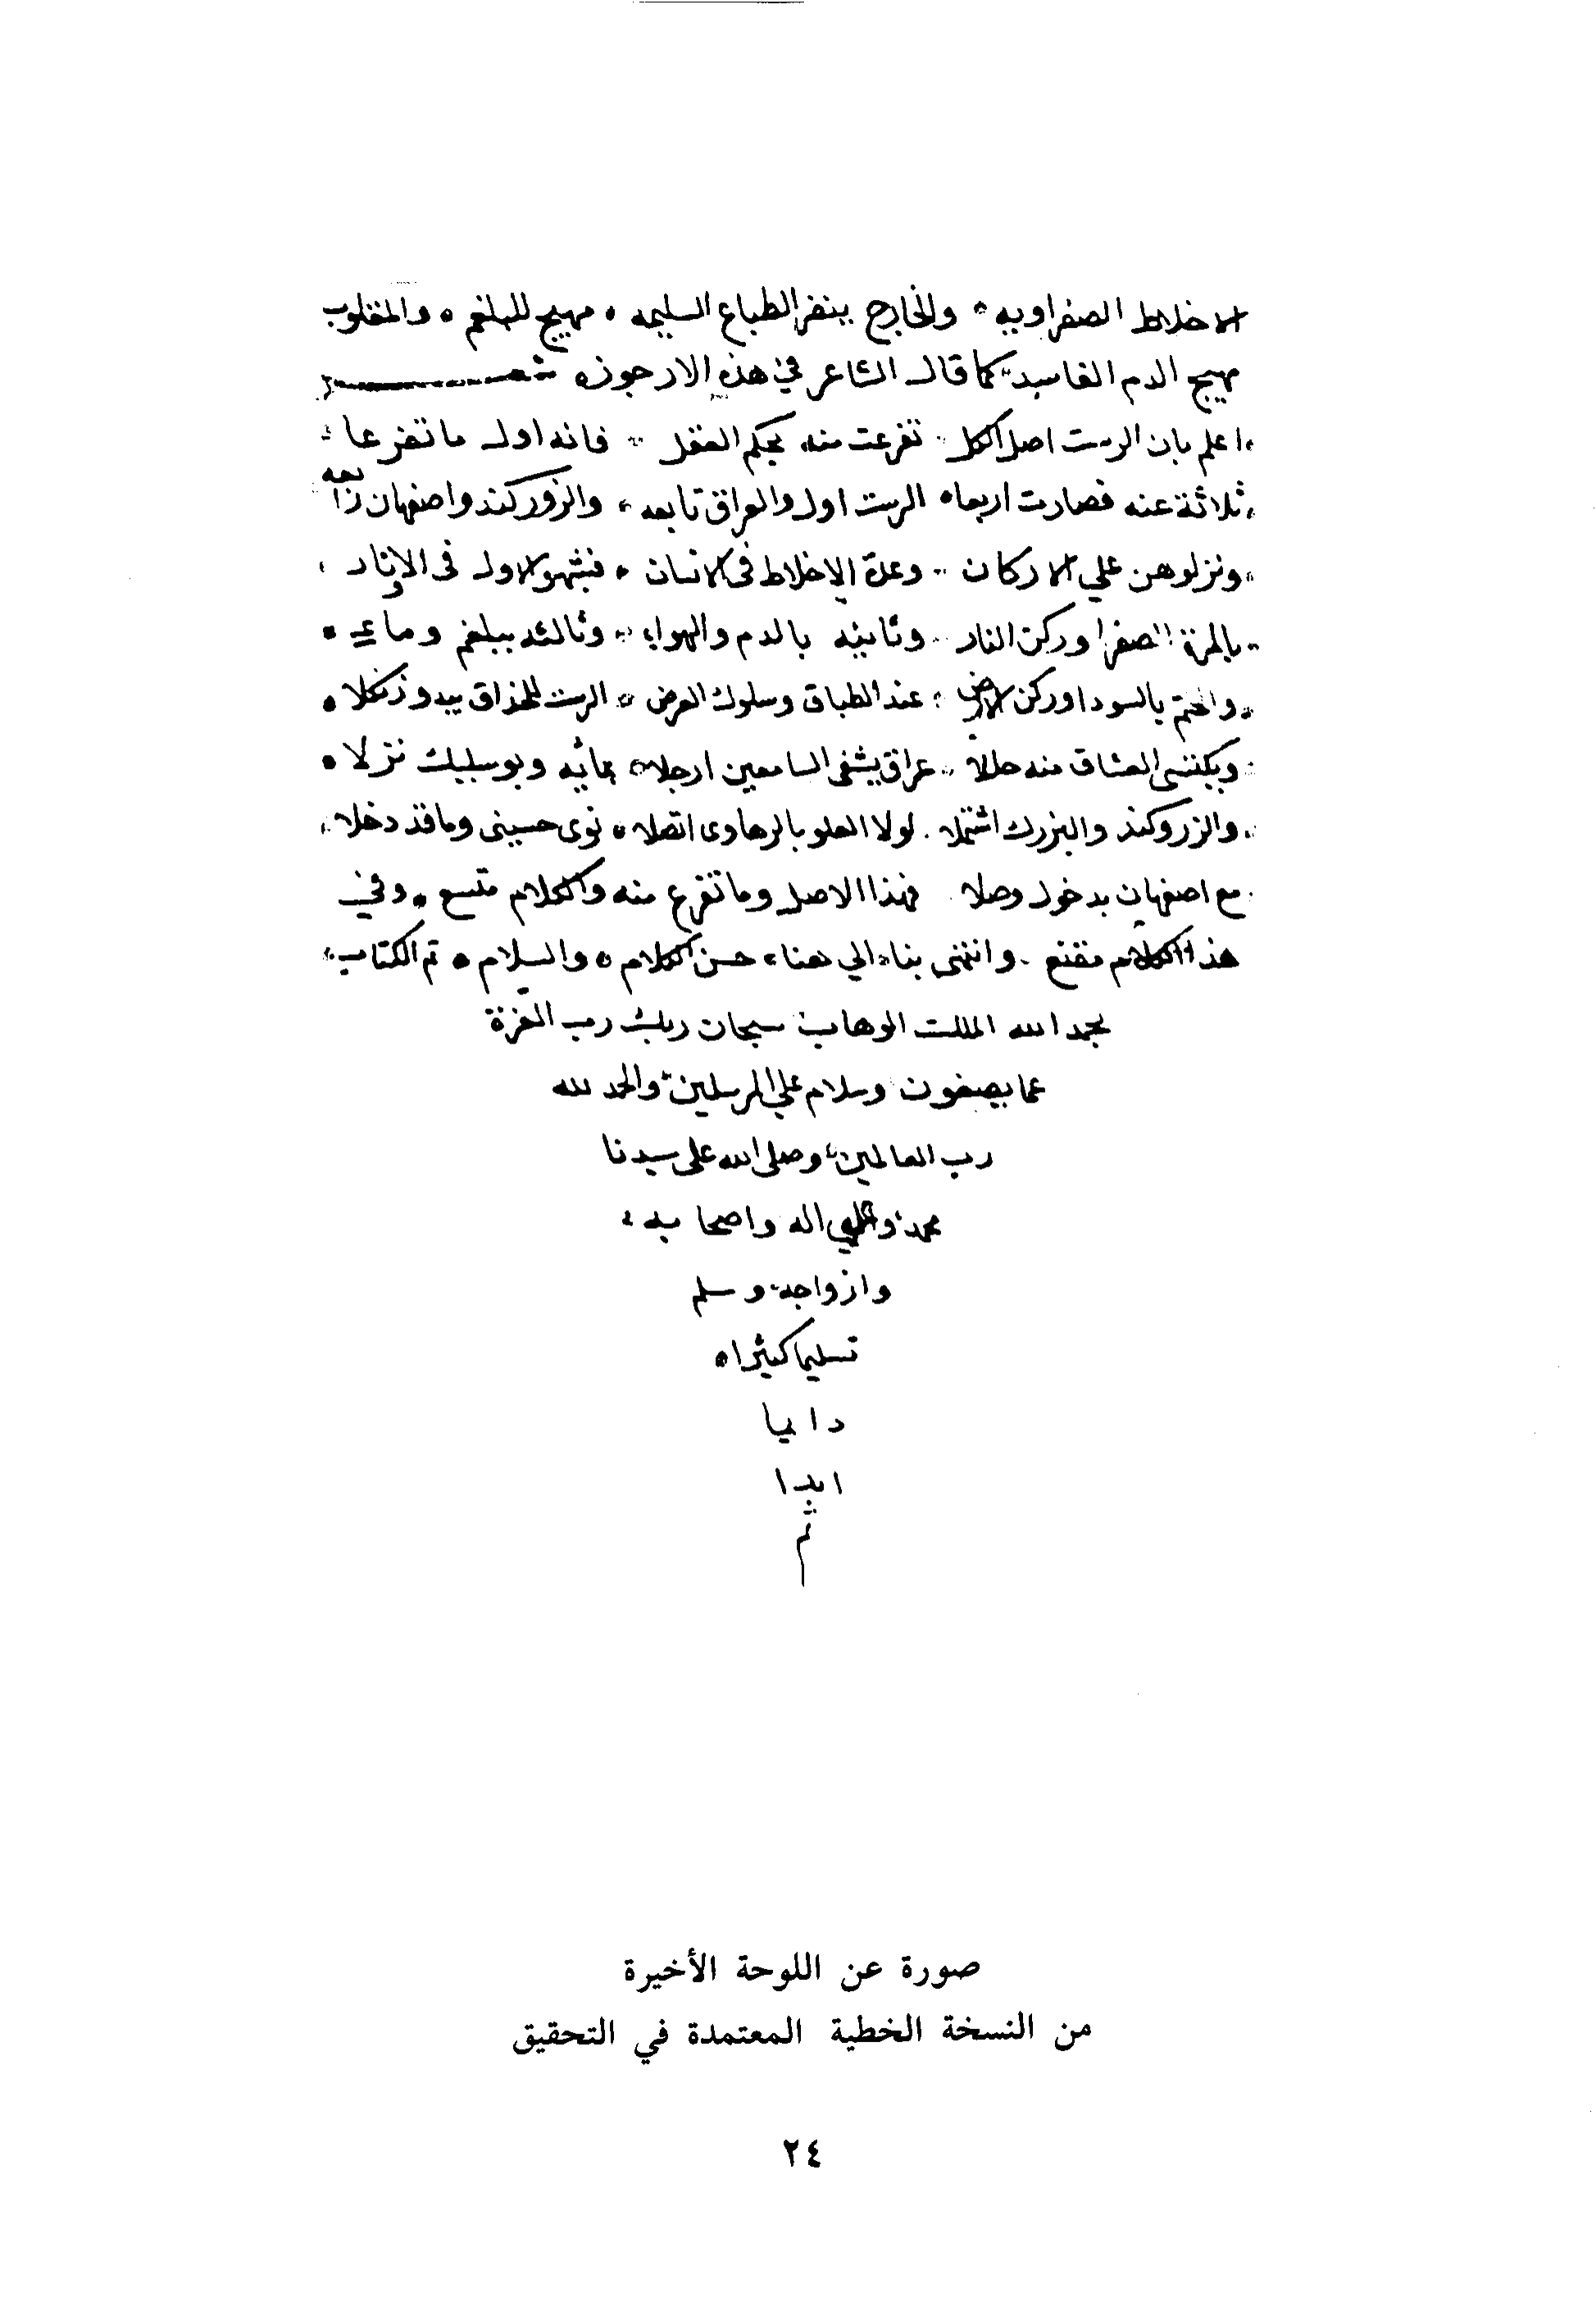 الاخلاط الصفراويه والخارج ينفر الطباع السليمه مهيج للبلغم والمقلوب
مهيج الدم الفاسد كما قال الشاعر في هذه الارجوزه شعر
اعلم بان الرست اصل الكل تفرعت منه بحكم العقل فانه اول ما تفرعا
ثلاثة عنه فصارت اربعا الرست اول والعراق تابعه والزوركند واصفهان رابعه
ونزلوهن علي الاركان وعدة الاخلاط في الانسان فشبهو الاول في الاوتار
بالمرة الصفرا وركن النار وثانيه بالدم والهواء وثالثه ببلغم وماء
واختم بالسودا وركن الارض عند الطباق وسلوك العرض الرست للحذاق يبدو زنكلا
ويكتسي العشاق منه حللا عراق يشفي السامعين ارجلا بمائيه وبوسليك نزلا
والزروكند والبزرك اشتملا لولا العلو بالرهاوى اتصلا نوى حسيني وما قد دخلا
مع اصفهان بدخول وصلا فهذا الاصل وما تفرع منه والكلام متسع وفي
هذا الكلام مقنع وانتهى بنا الي هنا حسن الكلام والسلام تم الكتاب
بحمد الله الملك الوهاب سبحان ربك رب العزة
عما يصفون وسلام علي المرسلين والحمد لله
رب العالمين وصلى الله على سيدنا
محمد وعلي اله واصحابه
وازواجه وسلم
تسليما كثيرا
دايما
ابدا
تم
صورة عن اللوحة الأخيرة
من النسخة الخطية المعتمدة في التحقيق
٢٤